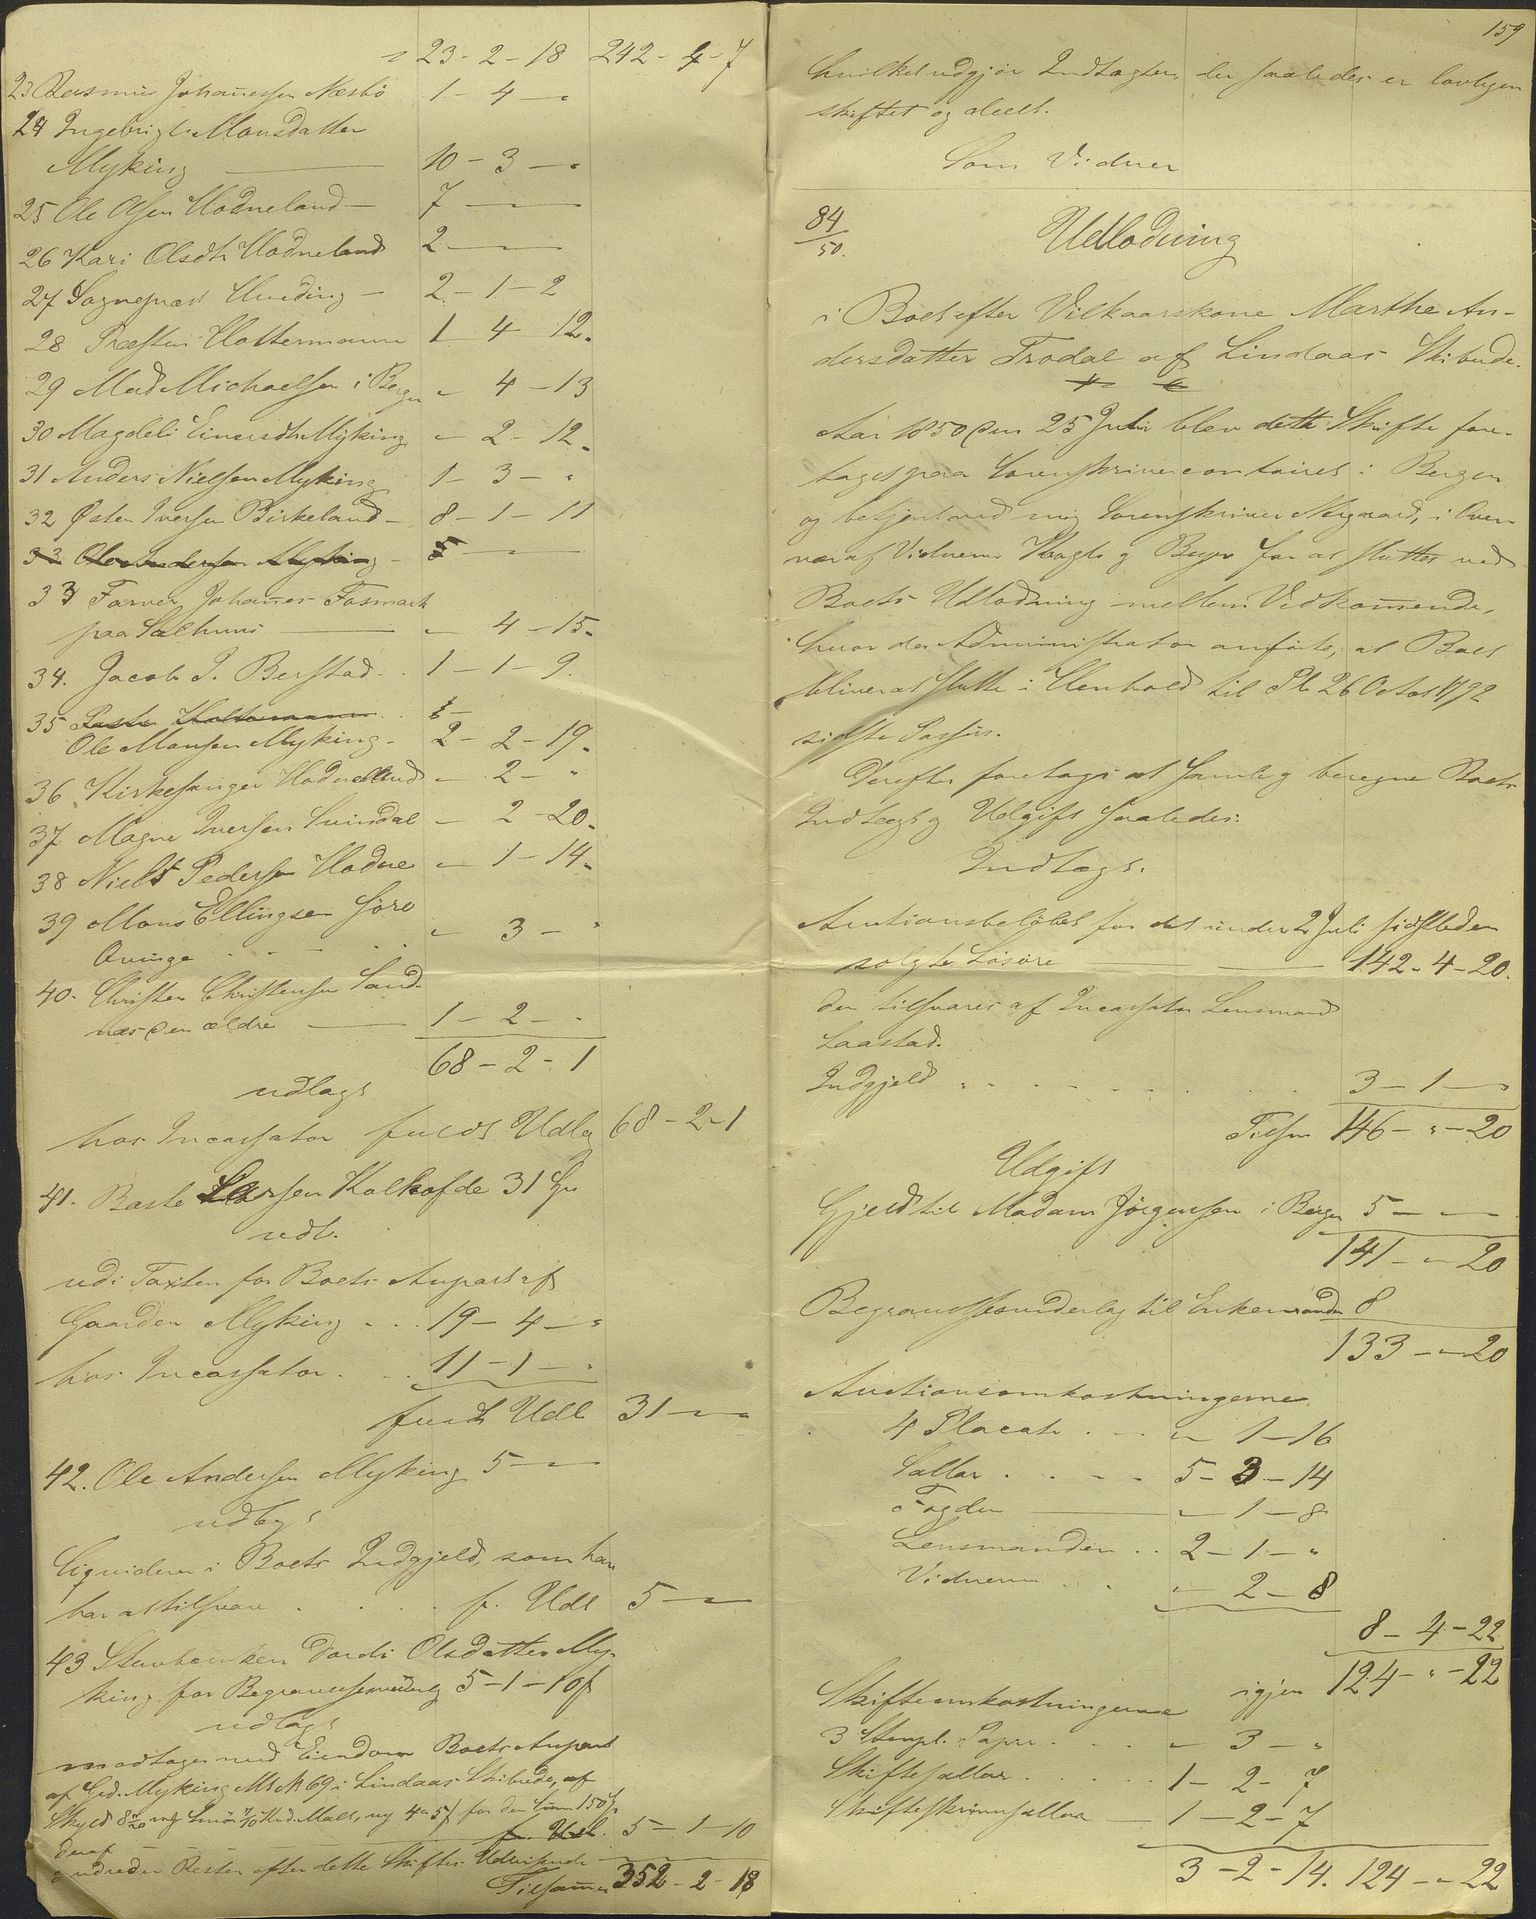 23-2-18 242-4-7
23 Rasmus Johañessen Næsbö 1-4-"
24 Ingebrigte Monsdatter
Myking 10-3-"
25 Ole Olsen Hodneland 7-"-"
26 Kari Olsdtr Hodneland 2-"-"
27 Sognepræst Hveding 2-1-2
28 Præsten Holtermann 1 4-12
29 Mad Michaelsen i Bergen "4-13
30 Magdeli Einersdtr Myking "-2-12
31 Anders Nielsen Myking 1-3-"
32 Østen Iversen Birkeland 8-1-11
33 Ole Andersen Myking 5-"-"
33 Farver Johañes Fosmark
paa Salhuus "4-15
34. Jacob J. Berstad 1-1-9.
35
Ole Monsen Myking 2-2-19
36 Kirkesanger Hodneland "-2-"
37 Magne Iversen Svindal "2-20
38 Niels Pedersen Hodne "-1-14
39 Mons Ellingsen Söre
Qvinge "3-"
40. Christen Christensen Sand-
næs den ældre 1-2-"
68-2-1
udlagt
hos Incassator fuldt Udlæg 68-2-1
41. Larsen Kolkofde 31 Sp
udl.
udi Taxten for Boets Anpart af
Gaarden Myking 19-4-"
hos Incassator 11-1-"
fuldt Udl 31-"-"
42. Ole Andersen Myking 5-"-"
udlagt
liqviderer i Boets Indgjeld, som han
har at tilsvare f. Udl 5-"-"
43 Stervboenken Dordi Olsdatter My-
king for Begravelsesudlæg 5-1-10 f
udlagt
modtager med Eiendom Boets Anpart
af Grd. Myking M No 69 i Lindaas Skibrede, af
Skyld Smör Hud. Malt, ny 4 for den Sum 150 Sp
deraf f. Udl. 5-1-10
udreder Resten efter dette Skiftes Udvisende
Tilsammen 352-2-18
159
hvilket udgjör Indtægten, der saaledes er lovligen
skiftet og deelt.
Som Vidner
84/50.
Udlodning
i Boet efter Vilkaarskone Marthe An-
dersdatter Trodal af Lindaas Skibrede.
Aar 1850 den 25 Juli blev dette Skifte fore-
taget paa Sorenskrivercontoiret i Bergen
og betjent ved mig Sorenskriver Nygaard, i Over-
vær af Vidnerne Vogt og Beyer for at sluttes ved
Boets Udlodning mellem Vedkom̃ende,
hvor da Administrator anförte, at Boet
bliver at slutte i Henhold til Pl 26 Octor 1792
sidste Passus.
Derefter foretages at samle og beregne Boets
Indtægt og Udgift saaledes:
Indtægt.
Auctionsbelöbet for det under 2 Juli sidstleden
solgte Lösöre 142-4-20.
der tilsvares af Incassator Lensmand
Laastad.
Indgjeld 3-1-"
Tilsm 146-"-20
Udgift
Gjeld til Madam Jörgensen i Bergen 5-"-"
141-"-20
Begravelsesudlæg til Enkemanden 8
133-"-20
Auctionsomkostningerne
4 Placater "-1-16
Sallar 5-3-14
Fogden "-1-8
Lensmanden 2-1-"
Vidnerne "2-8
8-4-22
igjen 124-"-22
Skifteomkostningerne
3 Stempl. Papir "3-"
Skiftesallar 1-2-7
Skifteskriversallar 1-2-7
3-2-14. 124-"-22